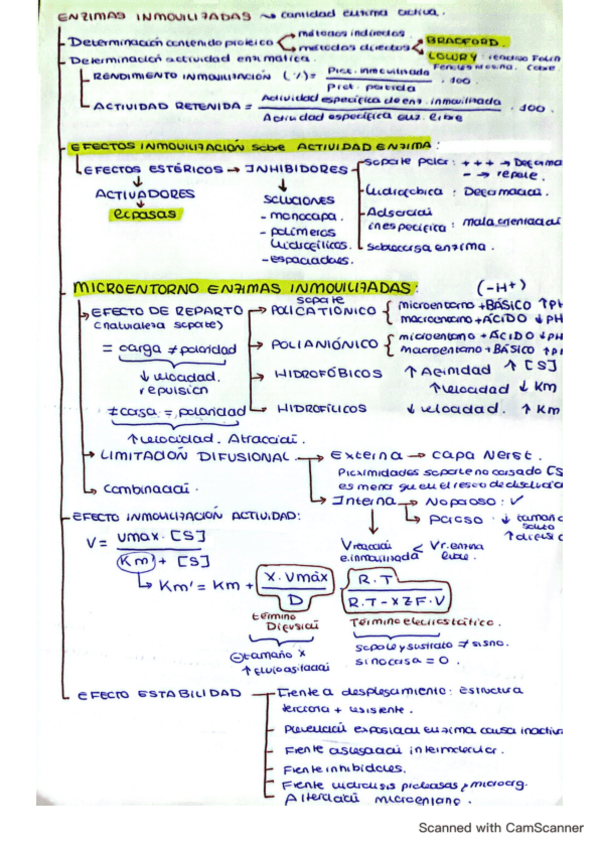 ENZIMAS INMOVILIZADAS → cantidad enzima activa.
Determinación contenido proteico
métodos indirectos
métodos directos
BRADFORD.
LOWRY: reactivo Folin
Determinación actividad enzimática.
RENDIMIENTO INMOVILIZACIÓN (%) = Prot. inmovilizada / Prot. partida · 100.
ACTIVIDAD RETENIDA = Actividad específica de enz. inmovilizada / Actividad específica enz. libre · 100.
EFECTOS INMOVILIZACIÓN sobre ACTIVIDAD ENZIMA:
EFECTOS ESTÉRICOS → INHIBIDORES
ACTIVADORES
lipasas
SOLUCIONES
- monocapa.
- polímeros hidrofílicos.
- espaciadores.
soporte polar: +++ → Deforma
- → repele.
Hidrofóbica: Deformación.
Adsorción inespecífica: mala orientació
sobrecarga enzima.
MICROENTORNO ENZIMAS INMOVILIZADAS:
(-H+)
EFECTO DE REPARTO
(naturaleza soporte)
= carga ≠ polaridad
↓ velocidad.
repulsión
≠ carga = polaridad
↑ velocidad. Atracción.
soporte
POLICATIÓNICO
microentorno + BÁSICO ↑ pH
macroentorno + ÁCIDO ↓ pH
POLIANIÓNICO
microentorno + ÁCIDO ↓ pH
macroentorno + BÁSICO ↑ p
HIDROFÓBICOS ↑ Afinidad ↑ [S]
↑ velocidad ↓ Km
HIDROFÍLICOS ↓ velocidad. ↑ Km
LIMITACIÓN DIFUSIONAL.
Externa → capa Nerst.
Proximidades soporte no cargado [S
es menor que en el resto de disolució
Interna → No poroso: ✓
Poroso · ↓ tamaño soluto
↑ difusió
V reacción e. inmovilizada < Vr. enzima libre.
Combinación.
EFECTO INMOVILIZACIÓN ACTIVIDAD:
V = Vmax · [S] / Km' + [S]
Km' = Km + X · Vmáx / D · R·T / R·T - XZF·V
término Difusión
⊖ tamaño X
Término electrostático.
soporte y sustrato ≠ signo.
si no carga = 0.
EFECTO ESTABILIDAD
Frente a desplegamiento: estructura
terciaria + resistente.
Prevención exposición enzima causa inactiv
Frente agregación intermolecular.
Frente inhibidores.
Frente hidrólisis proteasas y microorg.
Alteración microentorno.
Scanned with CamScanner